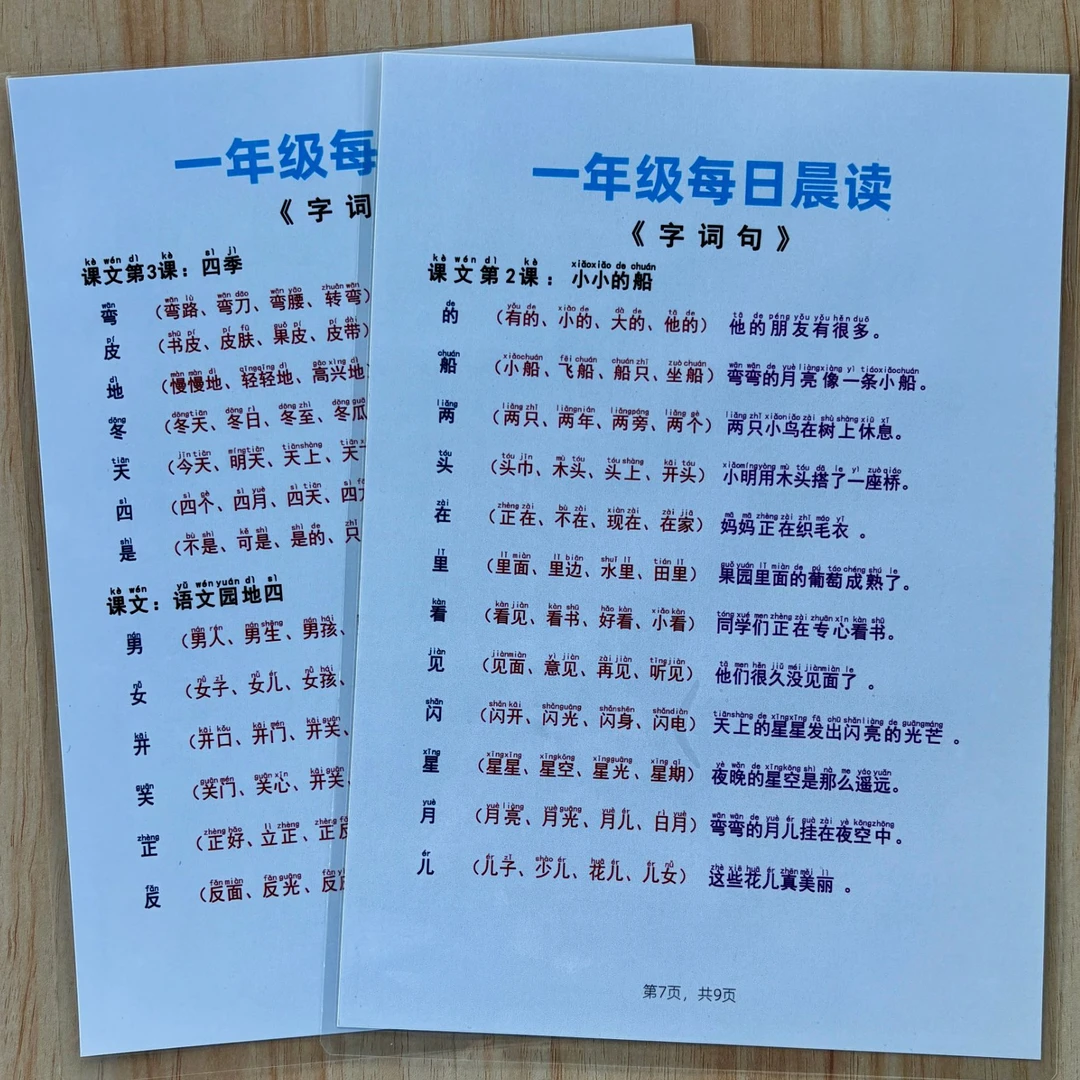 一年级每
《字词
kè wén dì kè sì jì
课文第3课：四季
wān wān lù wān dāo wān yāo zhuǎn wān
弯 （弯路、弯刀、弯腰、转弯）
pí shū pí pí fū guǒ pí pí dài
皮 （书皮、皮肤、果皮、皮带）
dì màn màn dì qīng qīng dì gāo xìng dì
地 （慢慢地、轻轻地、高兴地
dōng dōng tiān dōng rì dōng zhì dōng guā
冬 （冬天、冬日、冬至、冬瓜
tiān jīn tiān míng tiān tiān shàng tiān
天 （今天、明天、天上、天
sì sì gè sì yuè sì tiān sì
四 （四个、四月、四天、四
shì bù shì kě shì shì de zhǐ
是 （不是、可是、是的、只
kè wén yǔ wén yuán dì sì
课文：语文园地四
nán nán rén nán shēng nán hái
男 （男人、男生、男孩、
nǚ nǚ zǐ nǚ ér nǚ hái
女 （女子、女儿、女孩、
kāi kāi kǒu kāi mén kāi guān
开 （开口、开门、开关、
guān guān mén guān xīn kāi guān
关 （关门、关心、开关、
zhèng zhèng hǎo lì zhèng zhèng fǎn
正 （正好、立正、正反
fǎn fǎn miàn fǎn guāng fǎn
反 （反面、反光、反
一年级每日晨读
《字词句》
kè wén dì kè xiǎo xiǎo de chuán
课文第2课：小小的船
de yǒu de xiǎo de dà de tā de tā de péng yǒu yǒu hěn duō
的 （有的、小的、大的、他的） 他的朋友有很多。
chuán xiǎo chuán fēi chuán chuán zhī zuò chuán wān wān de yuè liàng xiàng yì tiáo xiǎo chuán
船 （小船、飞船、船只、坐船） 弯弯的月亮像一条小船。
liǎng liǎng zhī liǎng nián liǎng páng liǎng gè liǎng zhī xiǎo niǎo zài shù shàng xiū xī
两 （两只、两年、两旁、两个） 两只小鸟在树上休息。
tóu tóu jīn mù tóu tóu shàng kāi tóu xiǎo míng yòng mù tóu dā le yí zuò qiáo
头 （头巾、木头、头上、开头） 小明用木头搭了一座桥。
zài zhèng zài bù zài xiàn zài zài jiā mā mā zhèng zài zhī máo yī
在 （正在、不在、现在、在家） 妈妈正在织毛衣。
lǐ lǐ miàn lǐ biān shuǐ lǐ tián lǐ guǒ yuán lǐ miàn de pú táo chéng shú le
里 （里面、里边、水里、田里） 果园里面的葡萄成熟了。
kàn kàn jiàn kàn shū hǎo kàn xiǎo kàn tóng xué men zhèng zài zhuān xīn kàn shū
看 （看见、看书、好看、小看） 同学们正在专心看书。
jiàn jiàn miàn yì jiàn zài jiàn tīng jiàn tā men hěn jiǔ méi jiàn miàn le
见 （见面、意见、再见、听见） 他们很久没见面了。
shǎn shǎn kāi shǎn guāng shǎn shēn shǎn diàn tiān shàng de xīng xīng fā chū shǎn liàng de guāng máng
闪 （闪开、闪光、闪身、闪电） 天上的星星发出闪亮的光芒。
xīng xīng xīng xīng kōng xīng guāng xīng qī yè wǎn de xīng kōng shì nà me yáo yuǎn
星 （星星、星空、星光、星期） 夜晚的星空是那么遥远。
yuè yuè liàng yuè guāng yuè ér bái yuè wān wān de yuè ér guà zài yè kōng zhōng
月 （月亮、月光、月儿、白月） 弯弯的月儿挂在夜空中。
ér ér zǐ shào ér huā ér ér nǚ zhè xiē huā ér zhēn měi lì
儿 （儿子、少儿、花儿、儿女） 这些花儿真美丽。
第7页，共9页